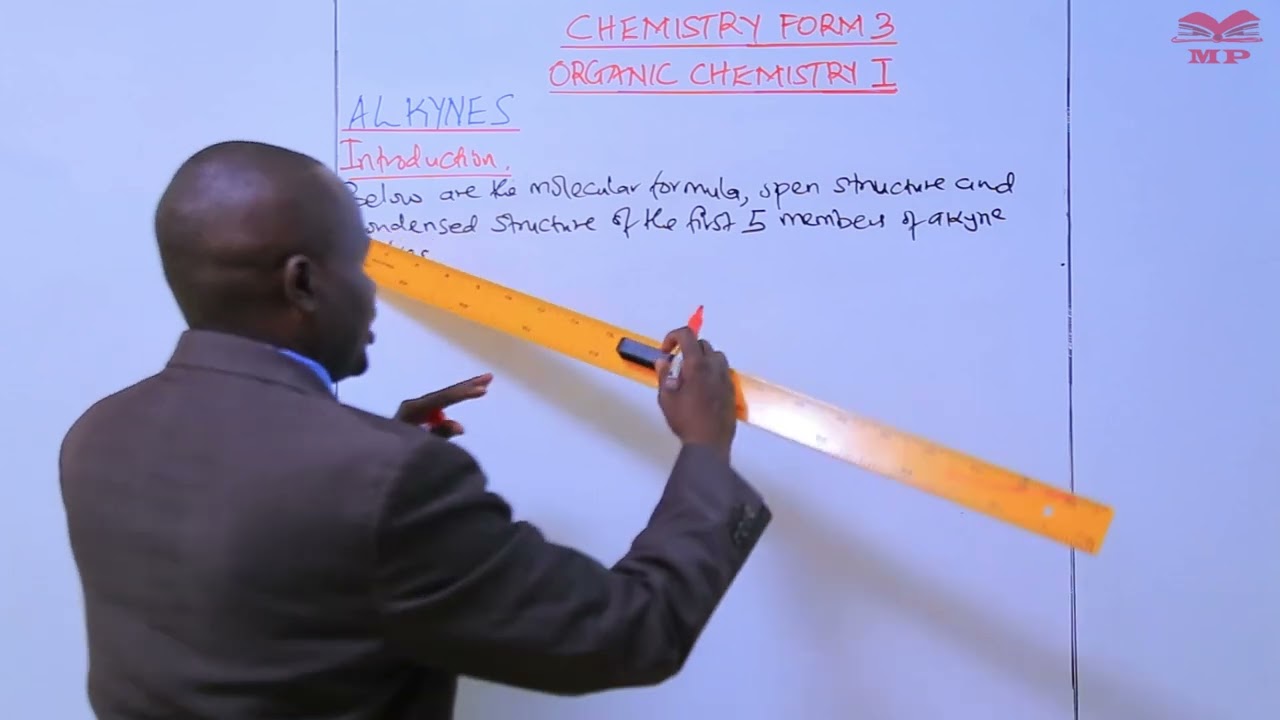 CHEMISTRY FORM 3
ORGANIC CHEMISTRY I
MP
ALKYNES
Introduction.
Below are the molecular formula, open structure and
condensed structure of the first 5 members of alkyne